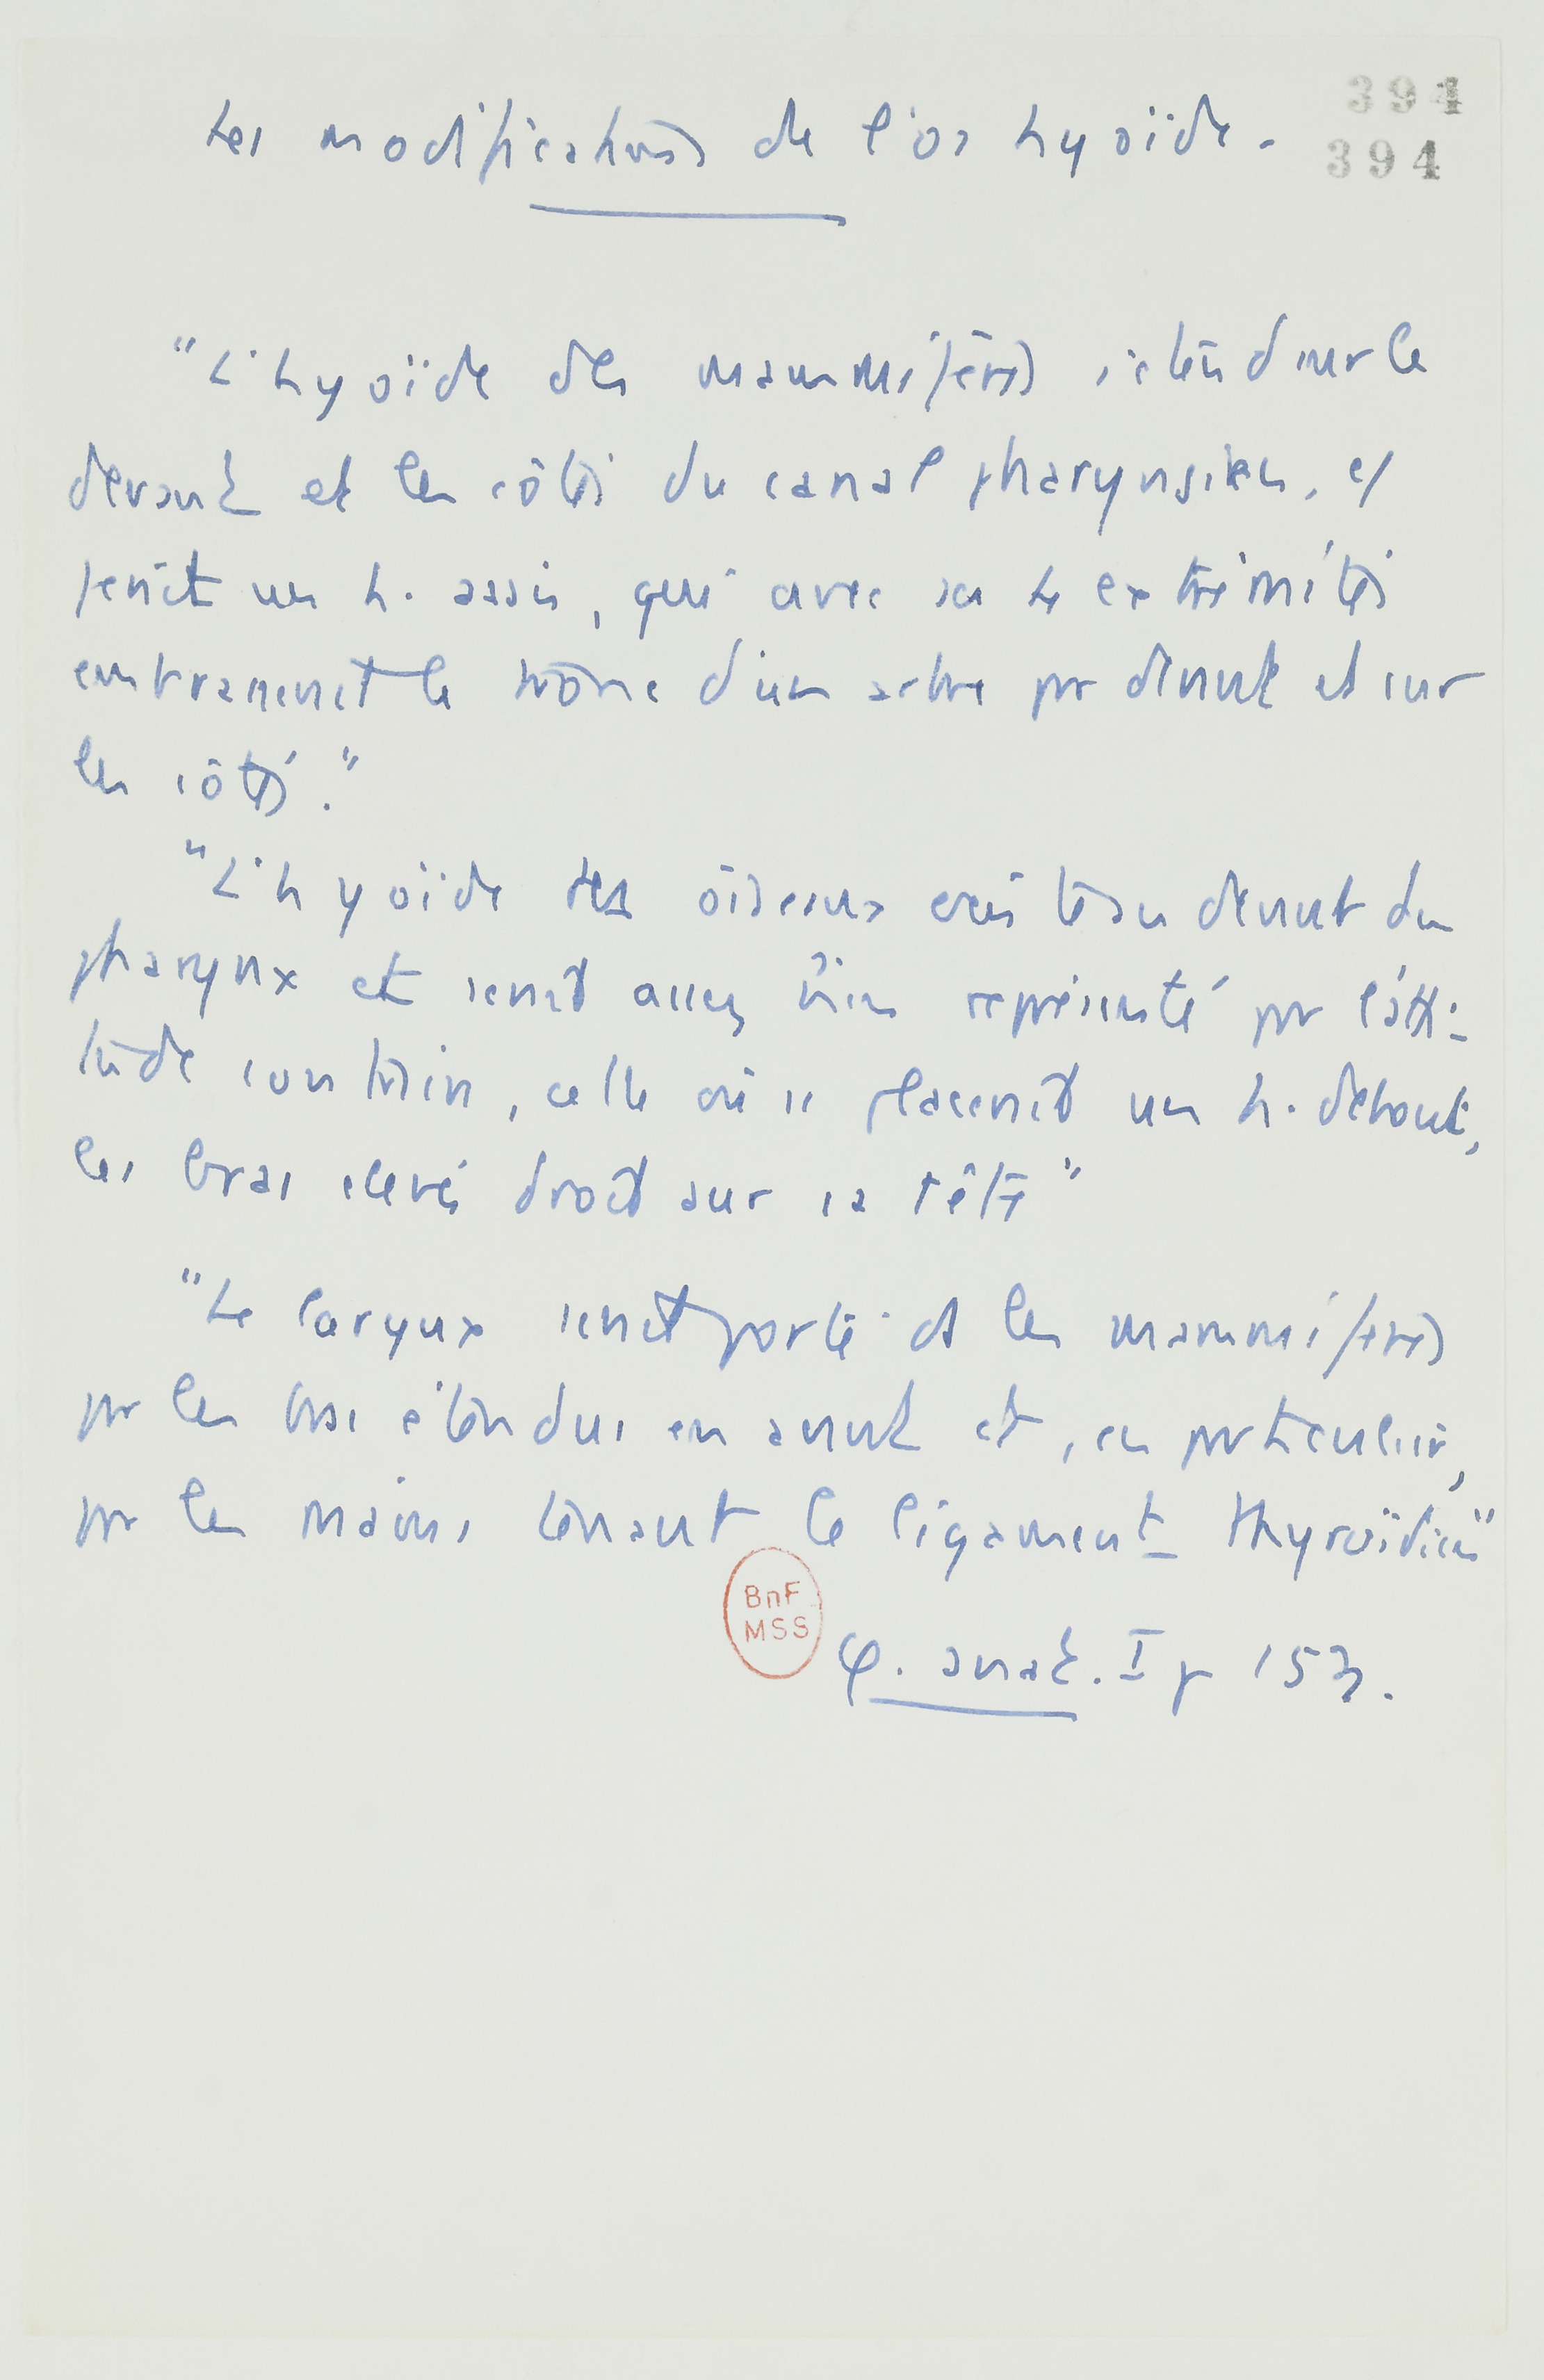 394
394
Les modifications de l'os hyoïde.
"L'hyoïde des mammifères s'étend sur le
devant et les côtés du canal pharyngien, cf
ferait un h. assis, qui avec ses 4 extrémités
embrasserait le tronc d'un arbre pr devant et sur
les côtés."
"L'hyoïde des oiseaux est au devant du
pharynx et serait assez bien représenté pr l'atti-
tude contrain, celle où se placerait un h. debout,
les bras élevés droit sur sa tête"
"Le larynx serait porté ds les mammifères
pr les bras étendus en avant et, en particulier,
pr les mains tenant le ligament thyroïdien"
φ. anat. I p 153.
BnF
MSS